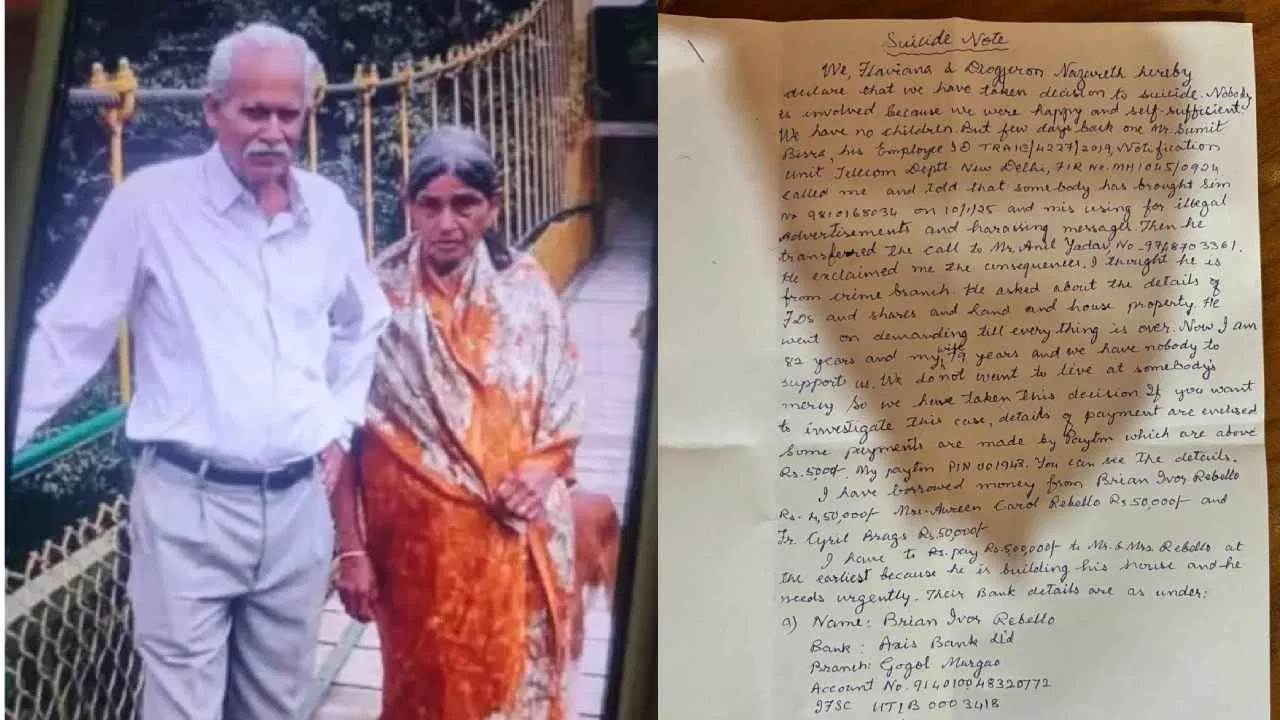 Suicide Note
We, Flaviana & Diogjeron Nazareth hereby
declare that we have taken decision to suicide. Nobody
is involved because we were happy and self-sufficient.
We have no children. But few days back one Mr. Sumit
Birra, his Employee ID TRAIC/4227/2019, Notification
unit Telecom Deptt New Delhi, FIR No. MH1045/0924
called me and told that somebody has brought sim
No 9810168034 on 10/1/25 and mis using for illegal
Advertisements and harassing messages. Then he
transferred the call to Mr. Anil Yadav, No - 9768703361.
He exclaimed me the consequences. I thought he is
from crime branch. He asked about the details of
FDS and shares and land and house property. He
went on demanding till every thing is over. Now I am
82 years and my wife 79 years and we have nobody to
support us. We do not want to live at somebody's
mercy. So we have taken this decision. If you want
to investigate this case, details of payment are enclosed
Some payments are made by Paytm which are above
Rs. 5000/-. My paytm PIN 001943. You can see the details.
I have borrowed money from Brian Ivor Rebello
Rs. 4,50,000/- Mrs. Aureen Carol Rebello Rs 50,000/- and
Fr. Cyril Brags Rs. 50,000/-
I have to Rs. pay Rs. 500,000/- to Mr. & Mrs. Rebello at
the earliest because he is building his house and he
needs urgently. Their Bank details are as under:
a) Name: Brian Ivor Rebello
Bank: Axis Bank Ltd
Branch: Gogol Margao
Account No. 914010048320772
IFSC UTIB 0003418